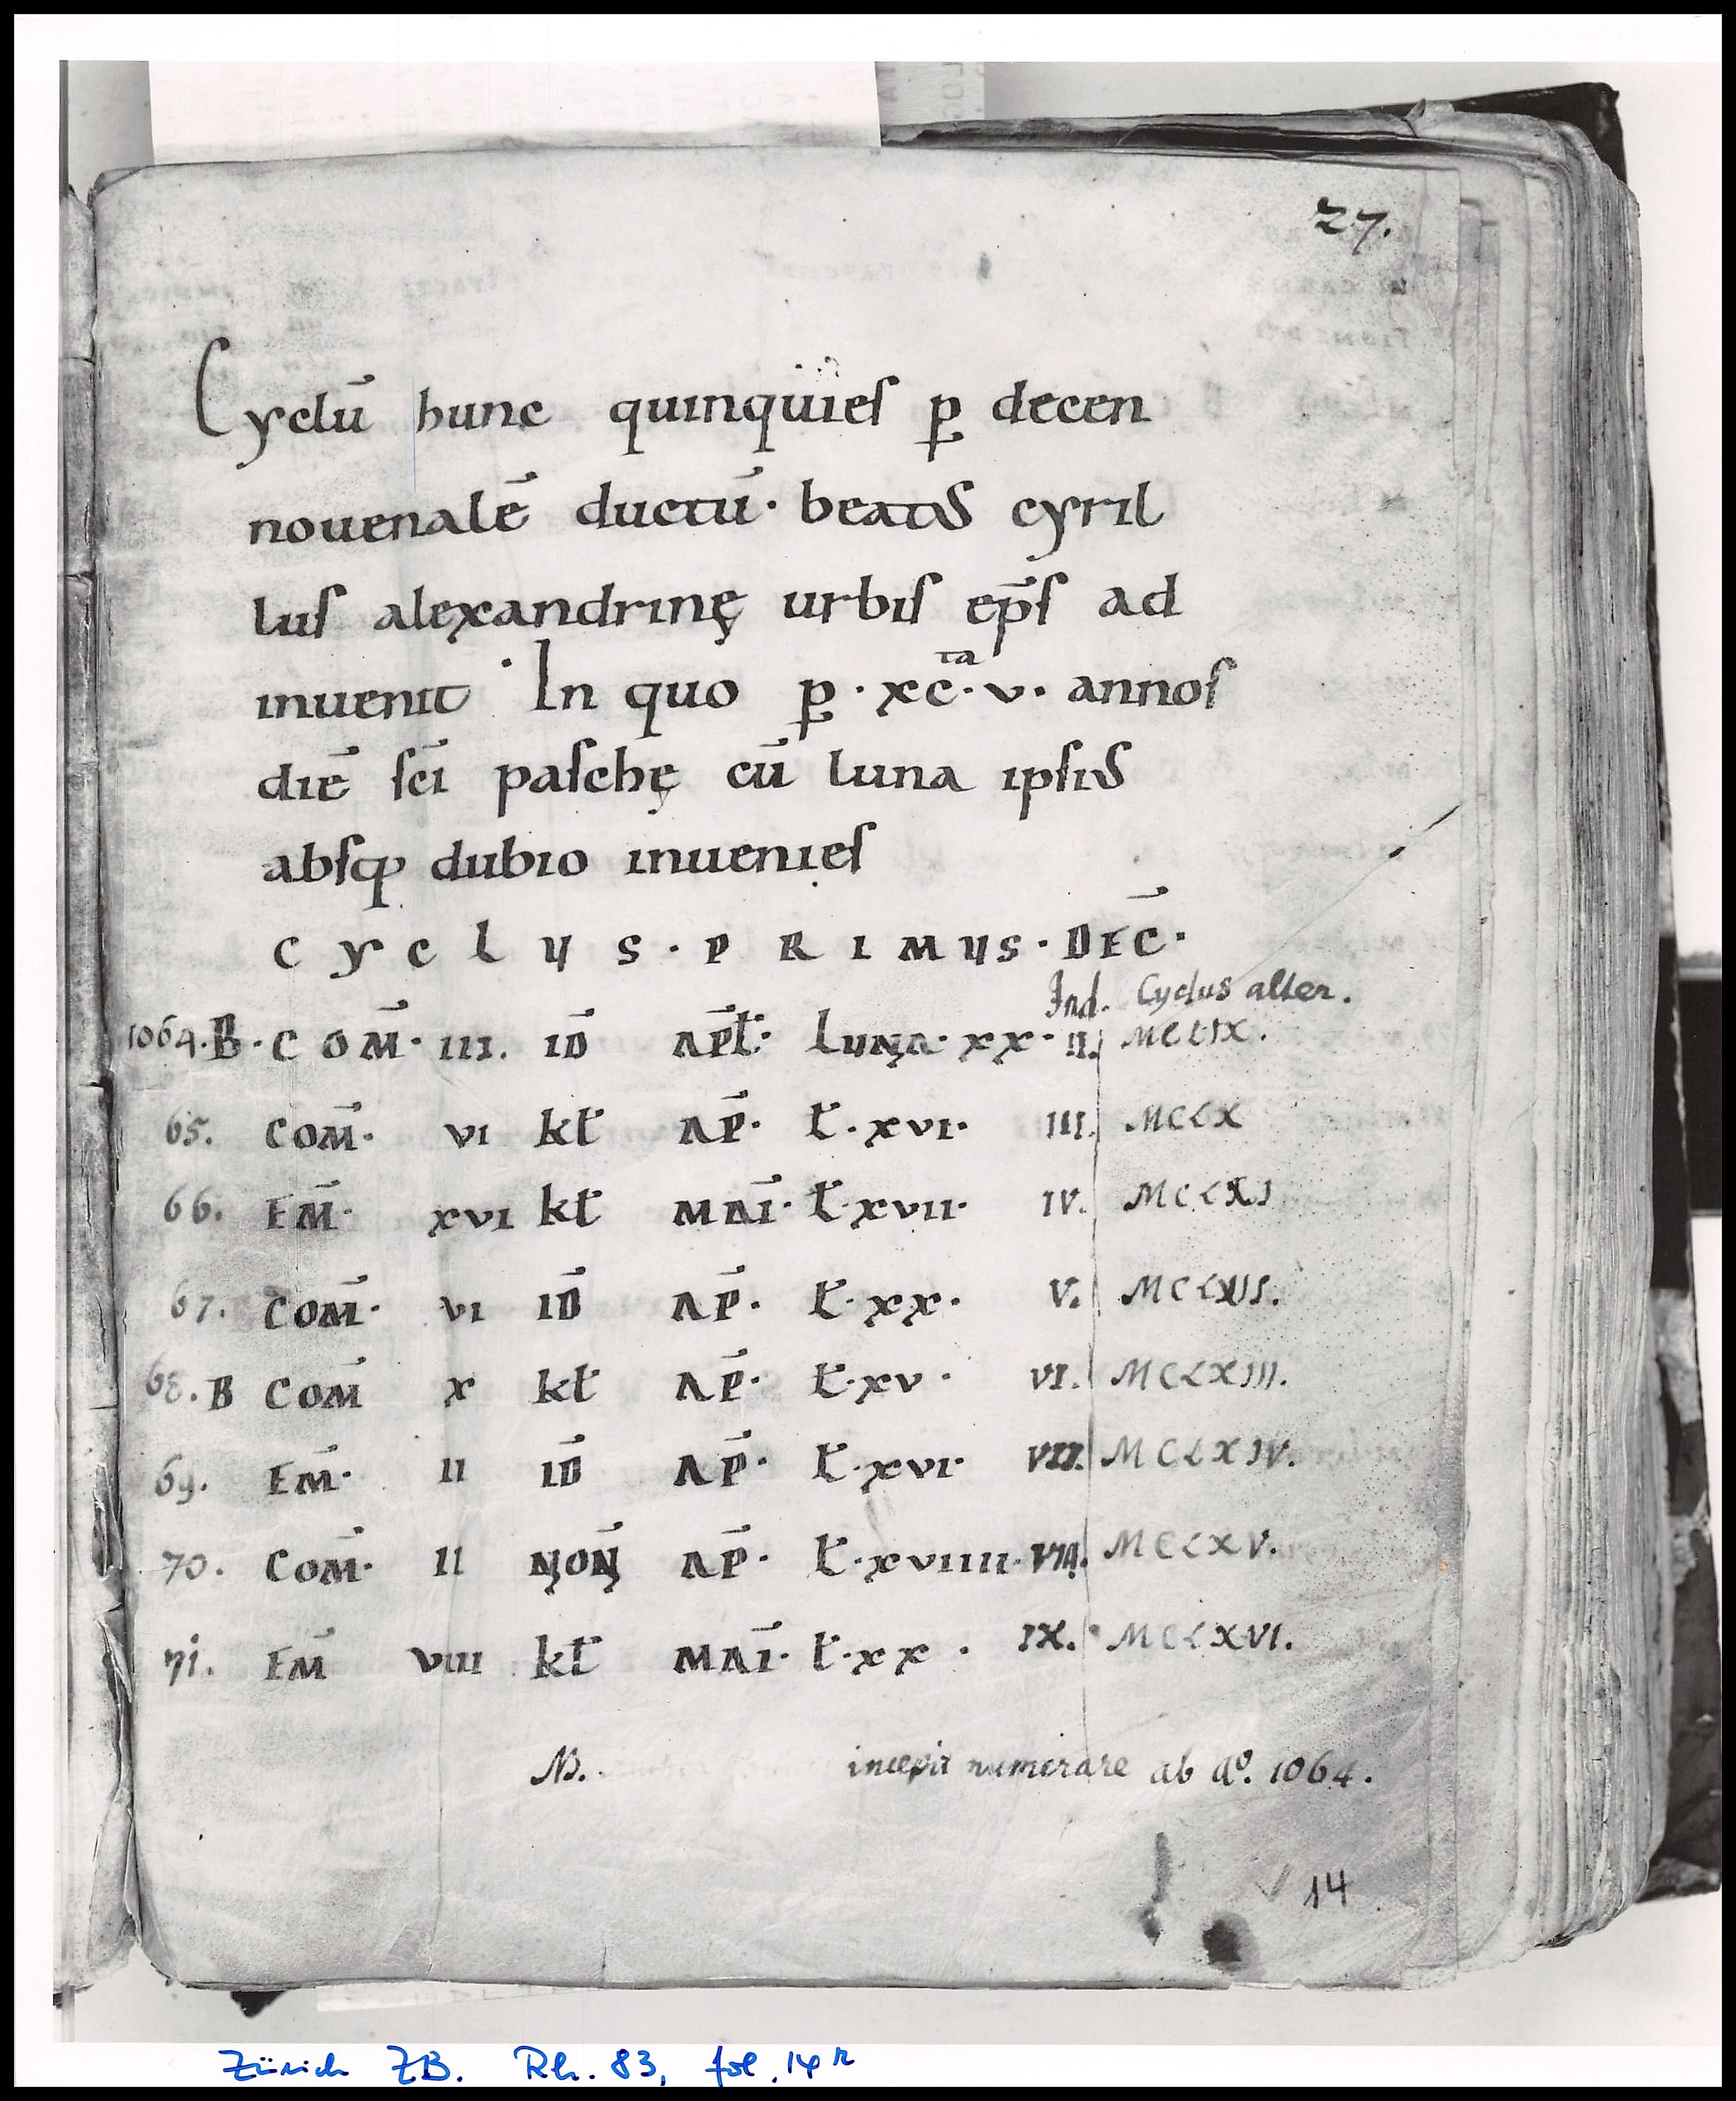 27.
Cyclū hunc quinquies ꝑ decen
nouenalē ductū· beatus cyril
lus alexandrinę urbis ep̄s ad
inuenit · In quo ꝑ · xc̄·v· annos
ta
diē sc̄i paschę cū luna ipsius
absq; dubio inuenies
CYCLUS · PRIMUS · DEC̄·
Ind. Cyclus alter.
1064. B · COM̄ · III. ID̄ AP̄ł· LUNA · XX · II. MCLIX.
65. COM̄· VI kł AP̄· ł · XVI· III. MCLX
66. EM̄· XVI kł MAĪ· ł·XVII· IV. MCLXI
67. COM̄· VI ID̄ AP̄· ł·XX· V. MCLXII.
68. B COM̄ X kł AP̄· ł·XV· VI. MCLXIII.
69. EM̄· II ID̄ AP̄· ł·XVI· VII. MCLXIV.
70. COM̄· II NON̄ AP̄· ł·XVIIII· VIII. MCLXV.
71. EM̄ VIII kł MAĪ· ł·XX · IX. MCLXVI.
NB. incepit numerare ab Aº. 1064.
14
Zürich ZB. Rh. 83, fol. 14r